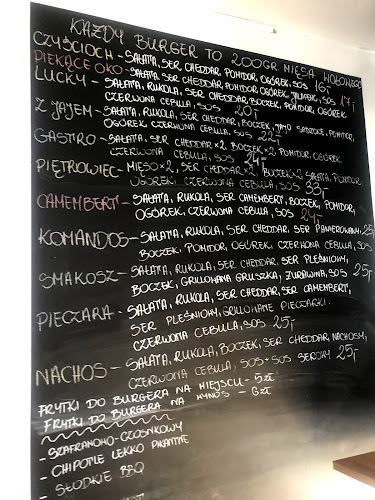 KAŻDY BURGER TO 200GR MIĘSA WOŁOWEGO
CZYŚCIOCH - SAŁATA, SER CHEDDAR, POMIDOR, OGÓREK, SOS 16,-
PIEKĄCE OKO - SAŁATA, SER CHEDDAR, POMIDOR, OGÓREK, JALAPEÑO, SOS 17,-
LUCKY - SAŁATA, RUKOLA, SER CHEDDAR, BOCZEK, POMIDOR, OGÓREK
CZERWONA CEBULA, SOS 20,-
Z JAJEM - SAŁATA, RUKOLA, SER CHEDDAR, BOCZEK, JAJO SADZONE, POMIDOR,
OGÓREK, CZERWONA CEBULA, SOS 22,-
GASTRO - SAŁATA, SER CHEDDAR ×2, BOCZEK ×2, POMIDOR, OGÓREK
CZERWONA CEBULA, SOS 24,-
PIĘTROWIEC - MIĘSO ×2, SER CHEDDAR ×2, BOCZEK ×2, SAŁATA, POMIDOR
OGÓREK, CZERWONA CEBULA, SOS 33,-
CAMEMBERT - SAŁATA, RUKOLA, SER CAMEMBERT, BOCZEK, POMIDOR,
OGÓREK, CZERWONA CEBULA, SOS 24,-
KOMANDOS - SAŁATA, RUKOLA, SER CHEDDAR, SER PANIEROWANY, 25,-
BOCZEK, POMIDOR, OGÓREK, CZERWONA CEBULA, SOS
SMAKOSZ - SAŁATA, RUKOLA, SER CHEDDAR, SER PLEŚNIOWY,
BOCZEK, GRILLOWANA GRUSZKA, ŻURAWINA, SOS 25,-
PIECZARA - SAŁATA, RUKOLA, SER CHEDDAR, SER CAMEMBERT,
SER PLEŚNIOWY, GRILLOWANE PIECZARKI
CZERWONA CEBULA, SOS 25,-
NACHOS - SAŁATA, RUKOLA, BOCZEK, SER CHEDDAR, NACHOSY,
CZERWONA CEBULA, SOS - SOS SEROWY 25,-
FRYTKI DO BURGERA NA MIEJSCU - 5zł
FRYTKI DO BURGERA NA WYNOS - 6zł
- SZAFRANOWO-CZOSNKOWY
- CHIPOTLE LEKKO PIKANTNE
- SŁODKIE BBQ